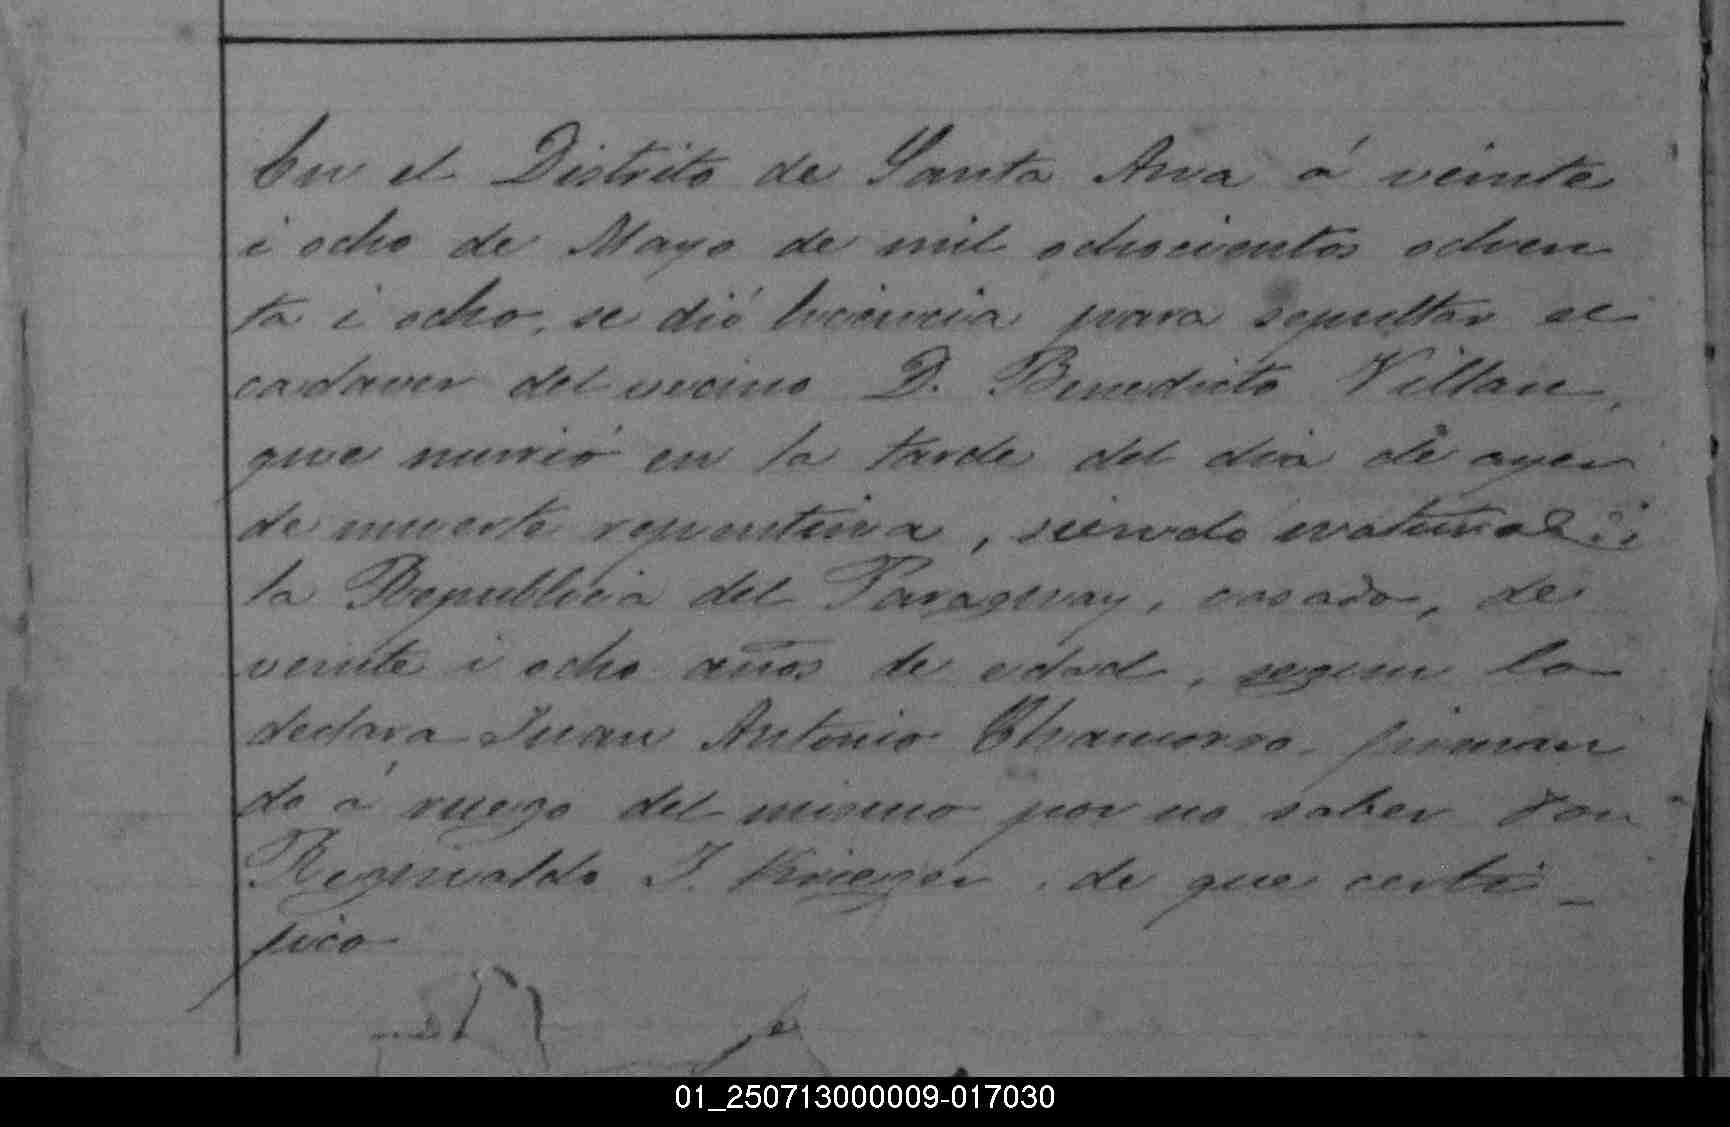 En el Distrito de Santa Ana á veinte
i ocho de Mayo de mil ochocientos ochen
ta i ocho, se dió licencia para sepultar el
cadaver del vecino D. Benedicto Villan,
que murió en la tarde del dia de ayer
de muerte repentina, siendo natural
la Republica del Paraguay, casado, de
veinte i ocho años de edad, segun lo
declara Juan Antonio Chamorro, firman
do á ruego del mismo por no saber Don
Reginaldo J. Krieger, de que certi_
fico
01_250713000009-017030